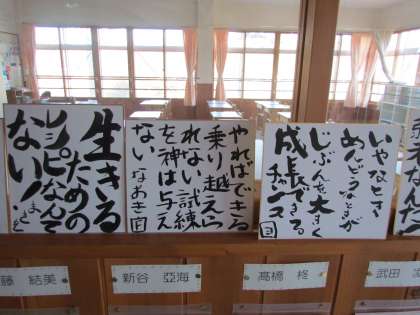 生きる
ための
レシピなんて
ない!
まこと
やればできる
乗り越えら
れない試練
を神は与え
ない なおき
いやなとき
めんどうなときが
じぶんを大きく
成長できる
チャンス
藤 結美
新谷 亞海
高橋 柊
武田